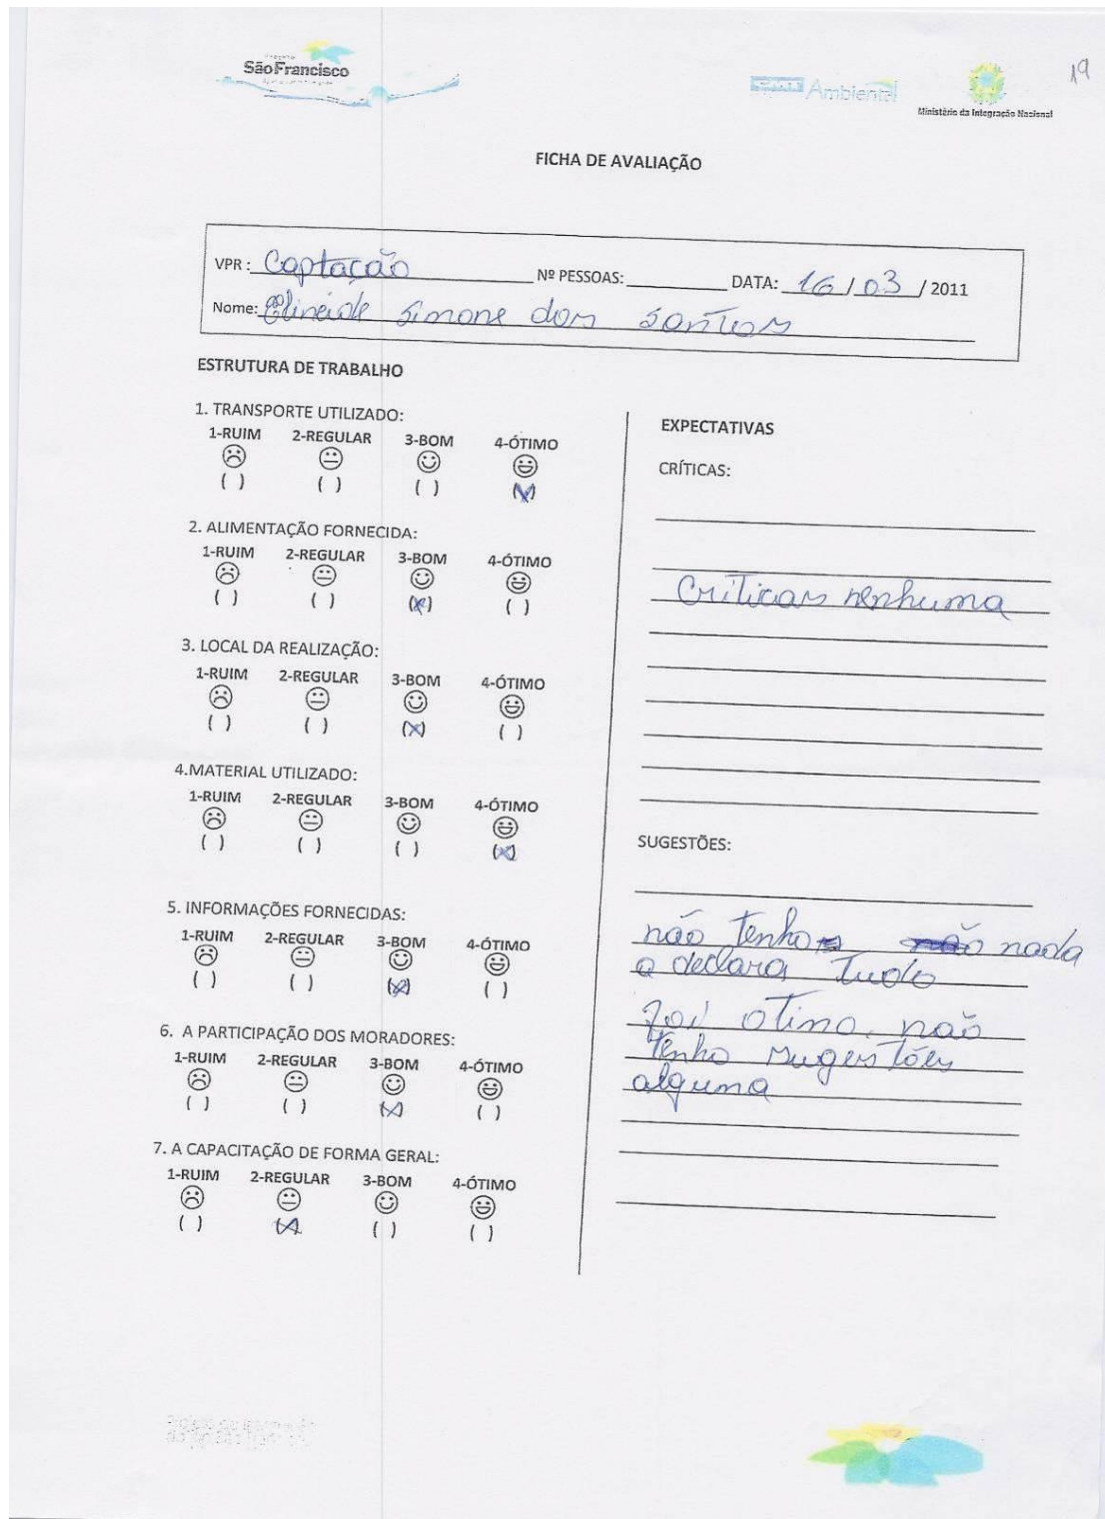 São Francisco
Ambiental
Ministério da Integração Nacional
19
FICHA DE AVALIAÇÃO
VPR : Captação Nº PESSOAS: DATA: 16 / 03 / 2011
Nome: Simone dos Santos
ESTRUTURA DE TRABALHO
1. TRANSPORTE UTILIZADO:
1-RUIM 2-REGULAR 3-BOM 4-ÓTIMO
( ) ( ) ( ) (X)
2. ALIMENTAÇÃO FORNECIDA:
1-RUIM 2-REGULAR 3-BOM 4-ÓTIMO
( ) ( ) (X) ( )
3. LOCAL DA REALIZAÇÃO:
1-RUIM 2-REGULAR 3-BOM 4-ÓTIMO
( ) ( ) (X) ( )
4.MATERIAL UTILIZADO:
1-RUIM 2-REGULAR 3-BOM 4-ÓTIMO
( ) ( ) ( ) (X)
5. INFORMAÇÕES FORNECIDAS:
1-RUIM 2-REGULAR 3-BOM 4-ÓTIMO
( ) ( ) (X) ( )
6. A PARTICIPAÇÃO DOS MORADORES:
1-RUIM 2-REGULAR 3-BOM 4-ÓTIMO
( ) ( ) (X) ( )
7. A CAPACITAÇÃO DE FORMA GERAL:
1-RUIM 2-REGULAR 3-BOM 4-ÓTIMO
( ) (X) ( ) ( )
EXPECTATIVAS
CRÍTICAS:
Criticas nenhuma
SUGESTÕES:
não tenho nada
a declara Tudo
foi otimo, não
Tenho sugestões
alguma